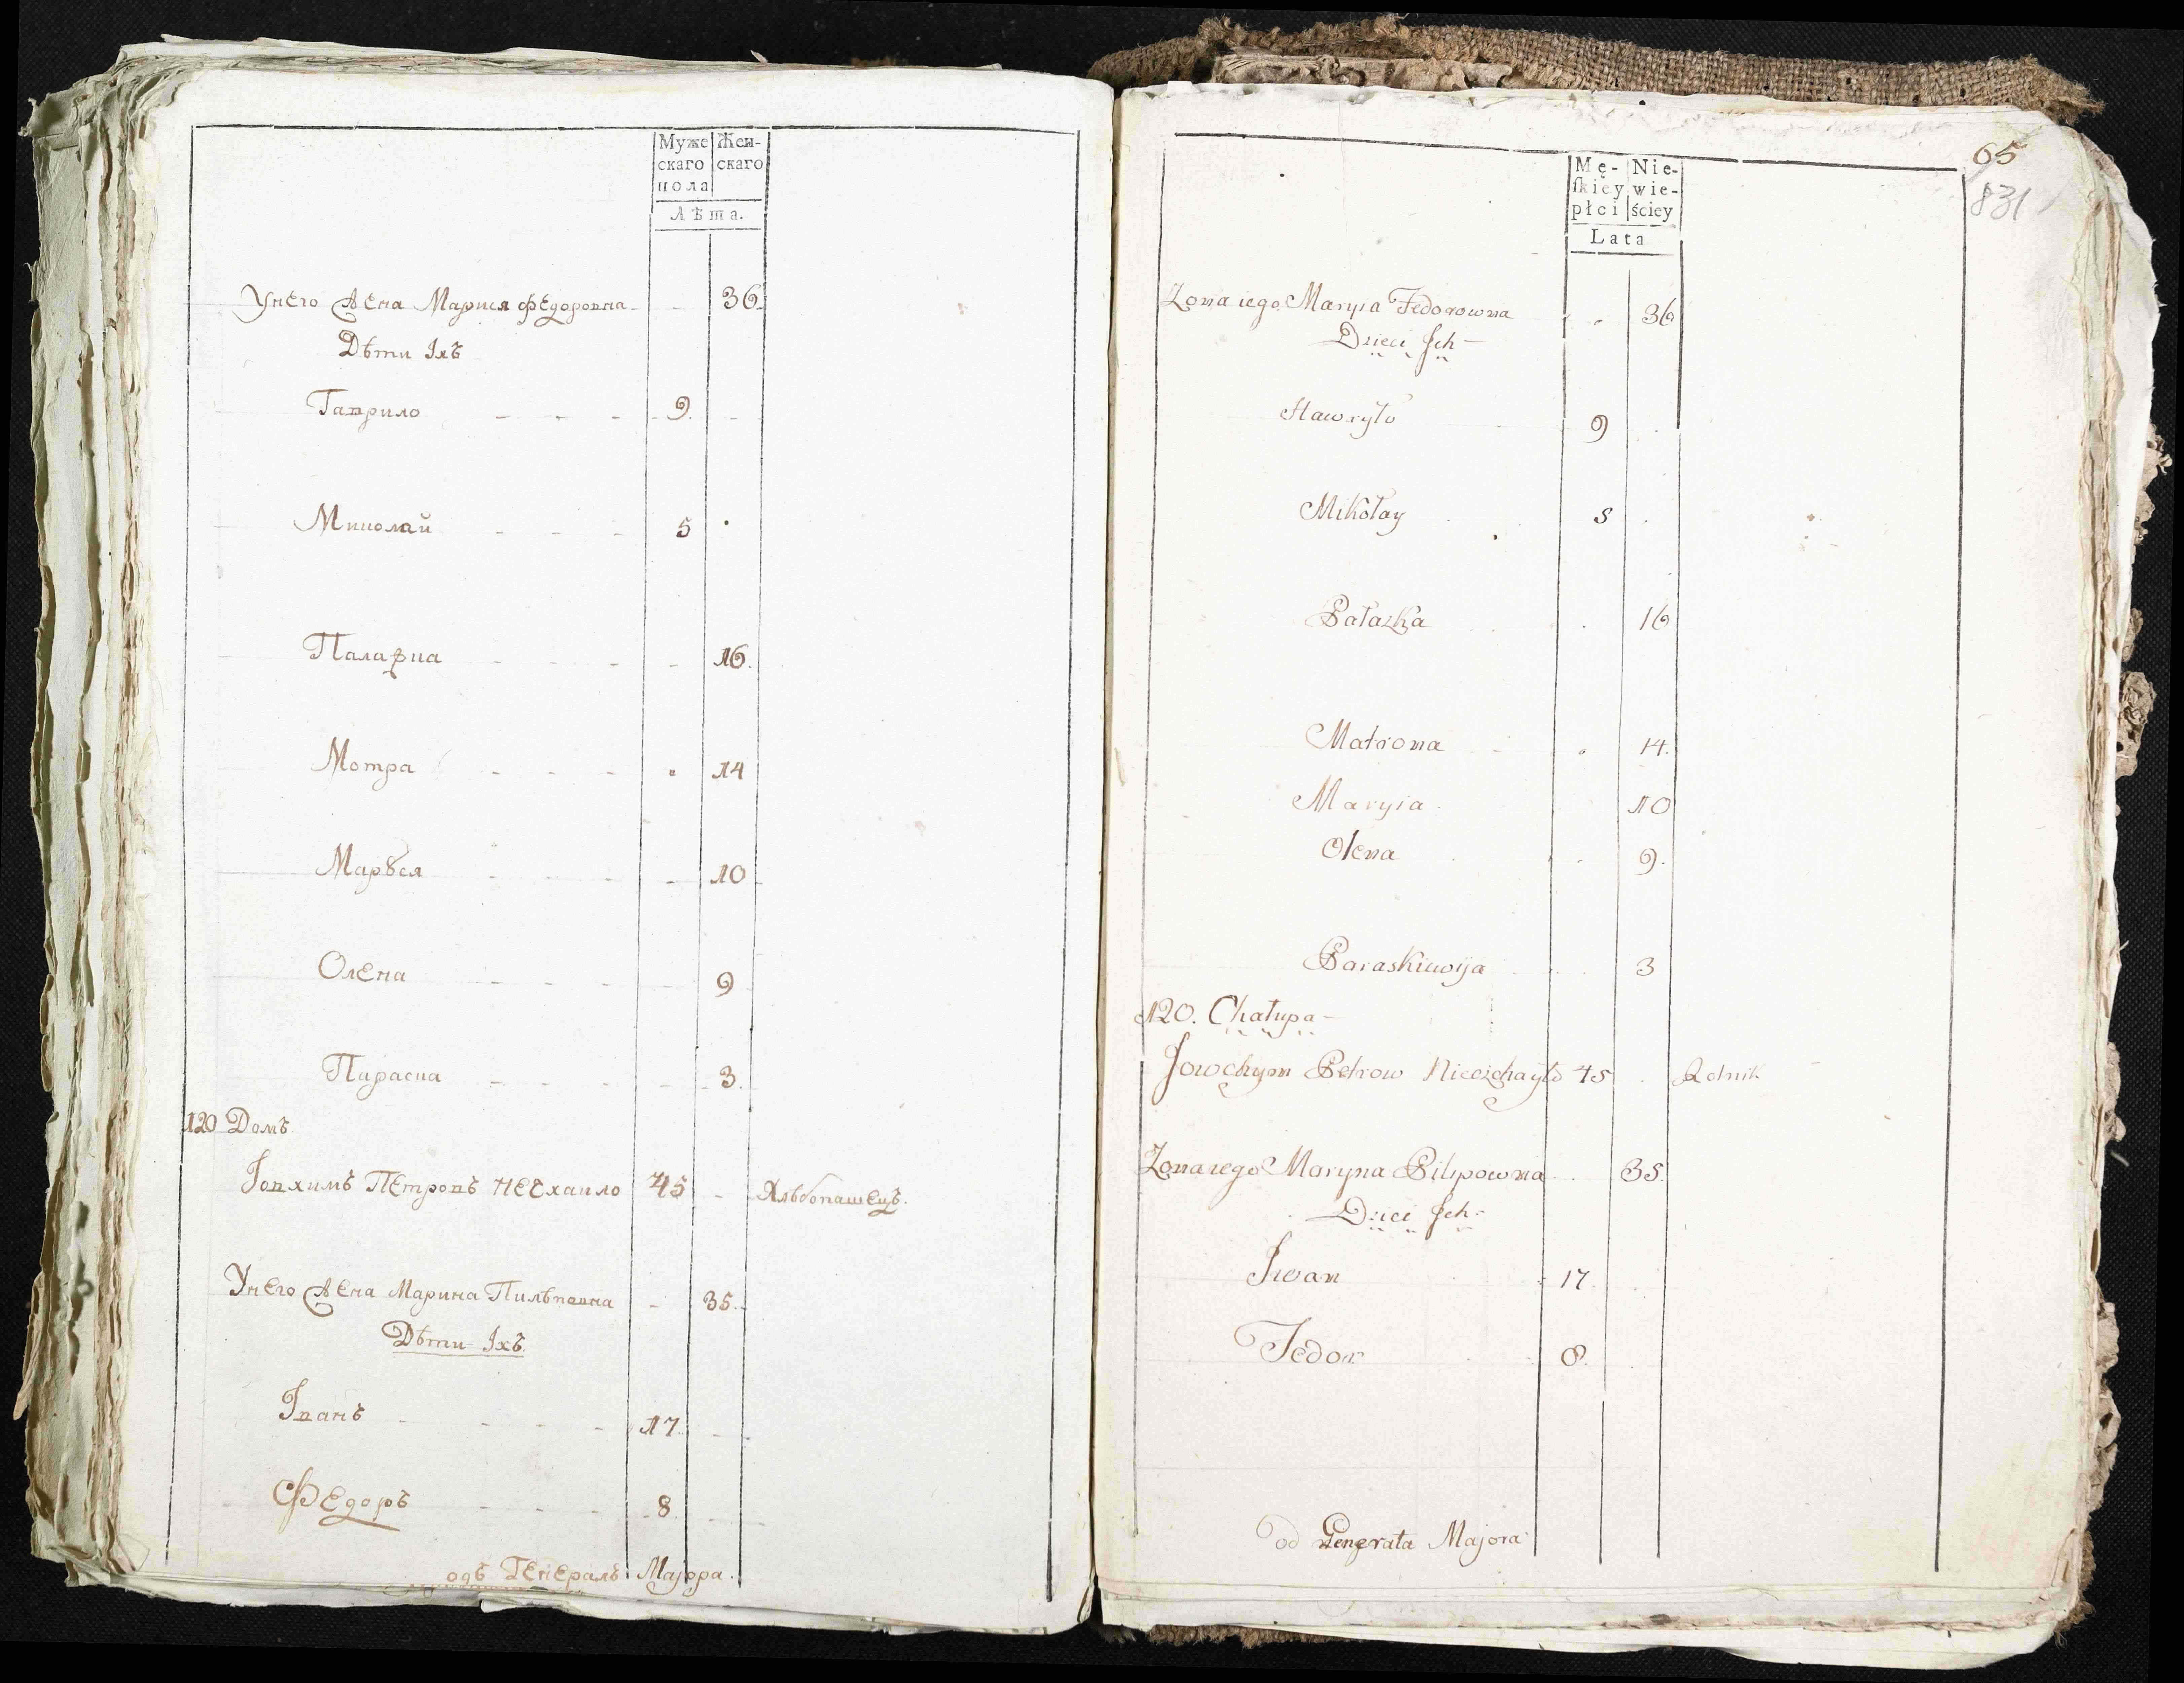 Муже Жен-
скаго скаго
пола
Лѣта.
Унего Жена Марися Федоровна 36.
Дѣти Іхъ
Гаврило 9.
Миколай 5
Палазка 16.
Мотра 14
Марꙋся 10
Олена 9
Параска 3.
120 Домъ.
Іовхимъ Петровъ 45 Хлѣбопашецъ.
Унего Жена Марина Пилѣповна 35.
Дѣти Іхъ.
Іванъ 17.
Федоръ 8.
одъ Генералъ Маjора.
65
831
Mę- Nie-
ſkiey wie-
płci ściey
Lata
Zona iego Maryia Fedorowna 36
Dzieci Jch
Hawryło 9
Mikołay 5
Pałazka 16
Matrona 14.
Maryia 10
Olena 9.
Paraskiwija 3
120. Chałupa
Jowchym Petrow 45 Rolnik
Zona iego Maryna Pilipowna 35.
Dzieci Jch
Iwan 17.
Fedor 8.
od Generała Majora